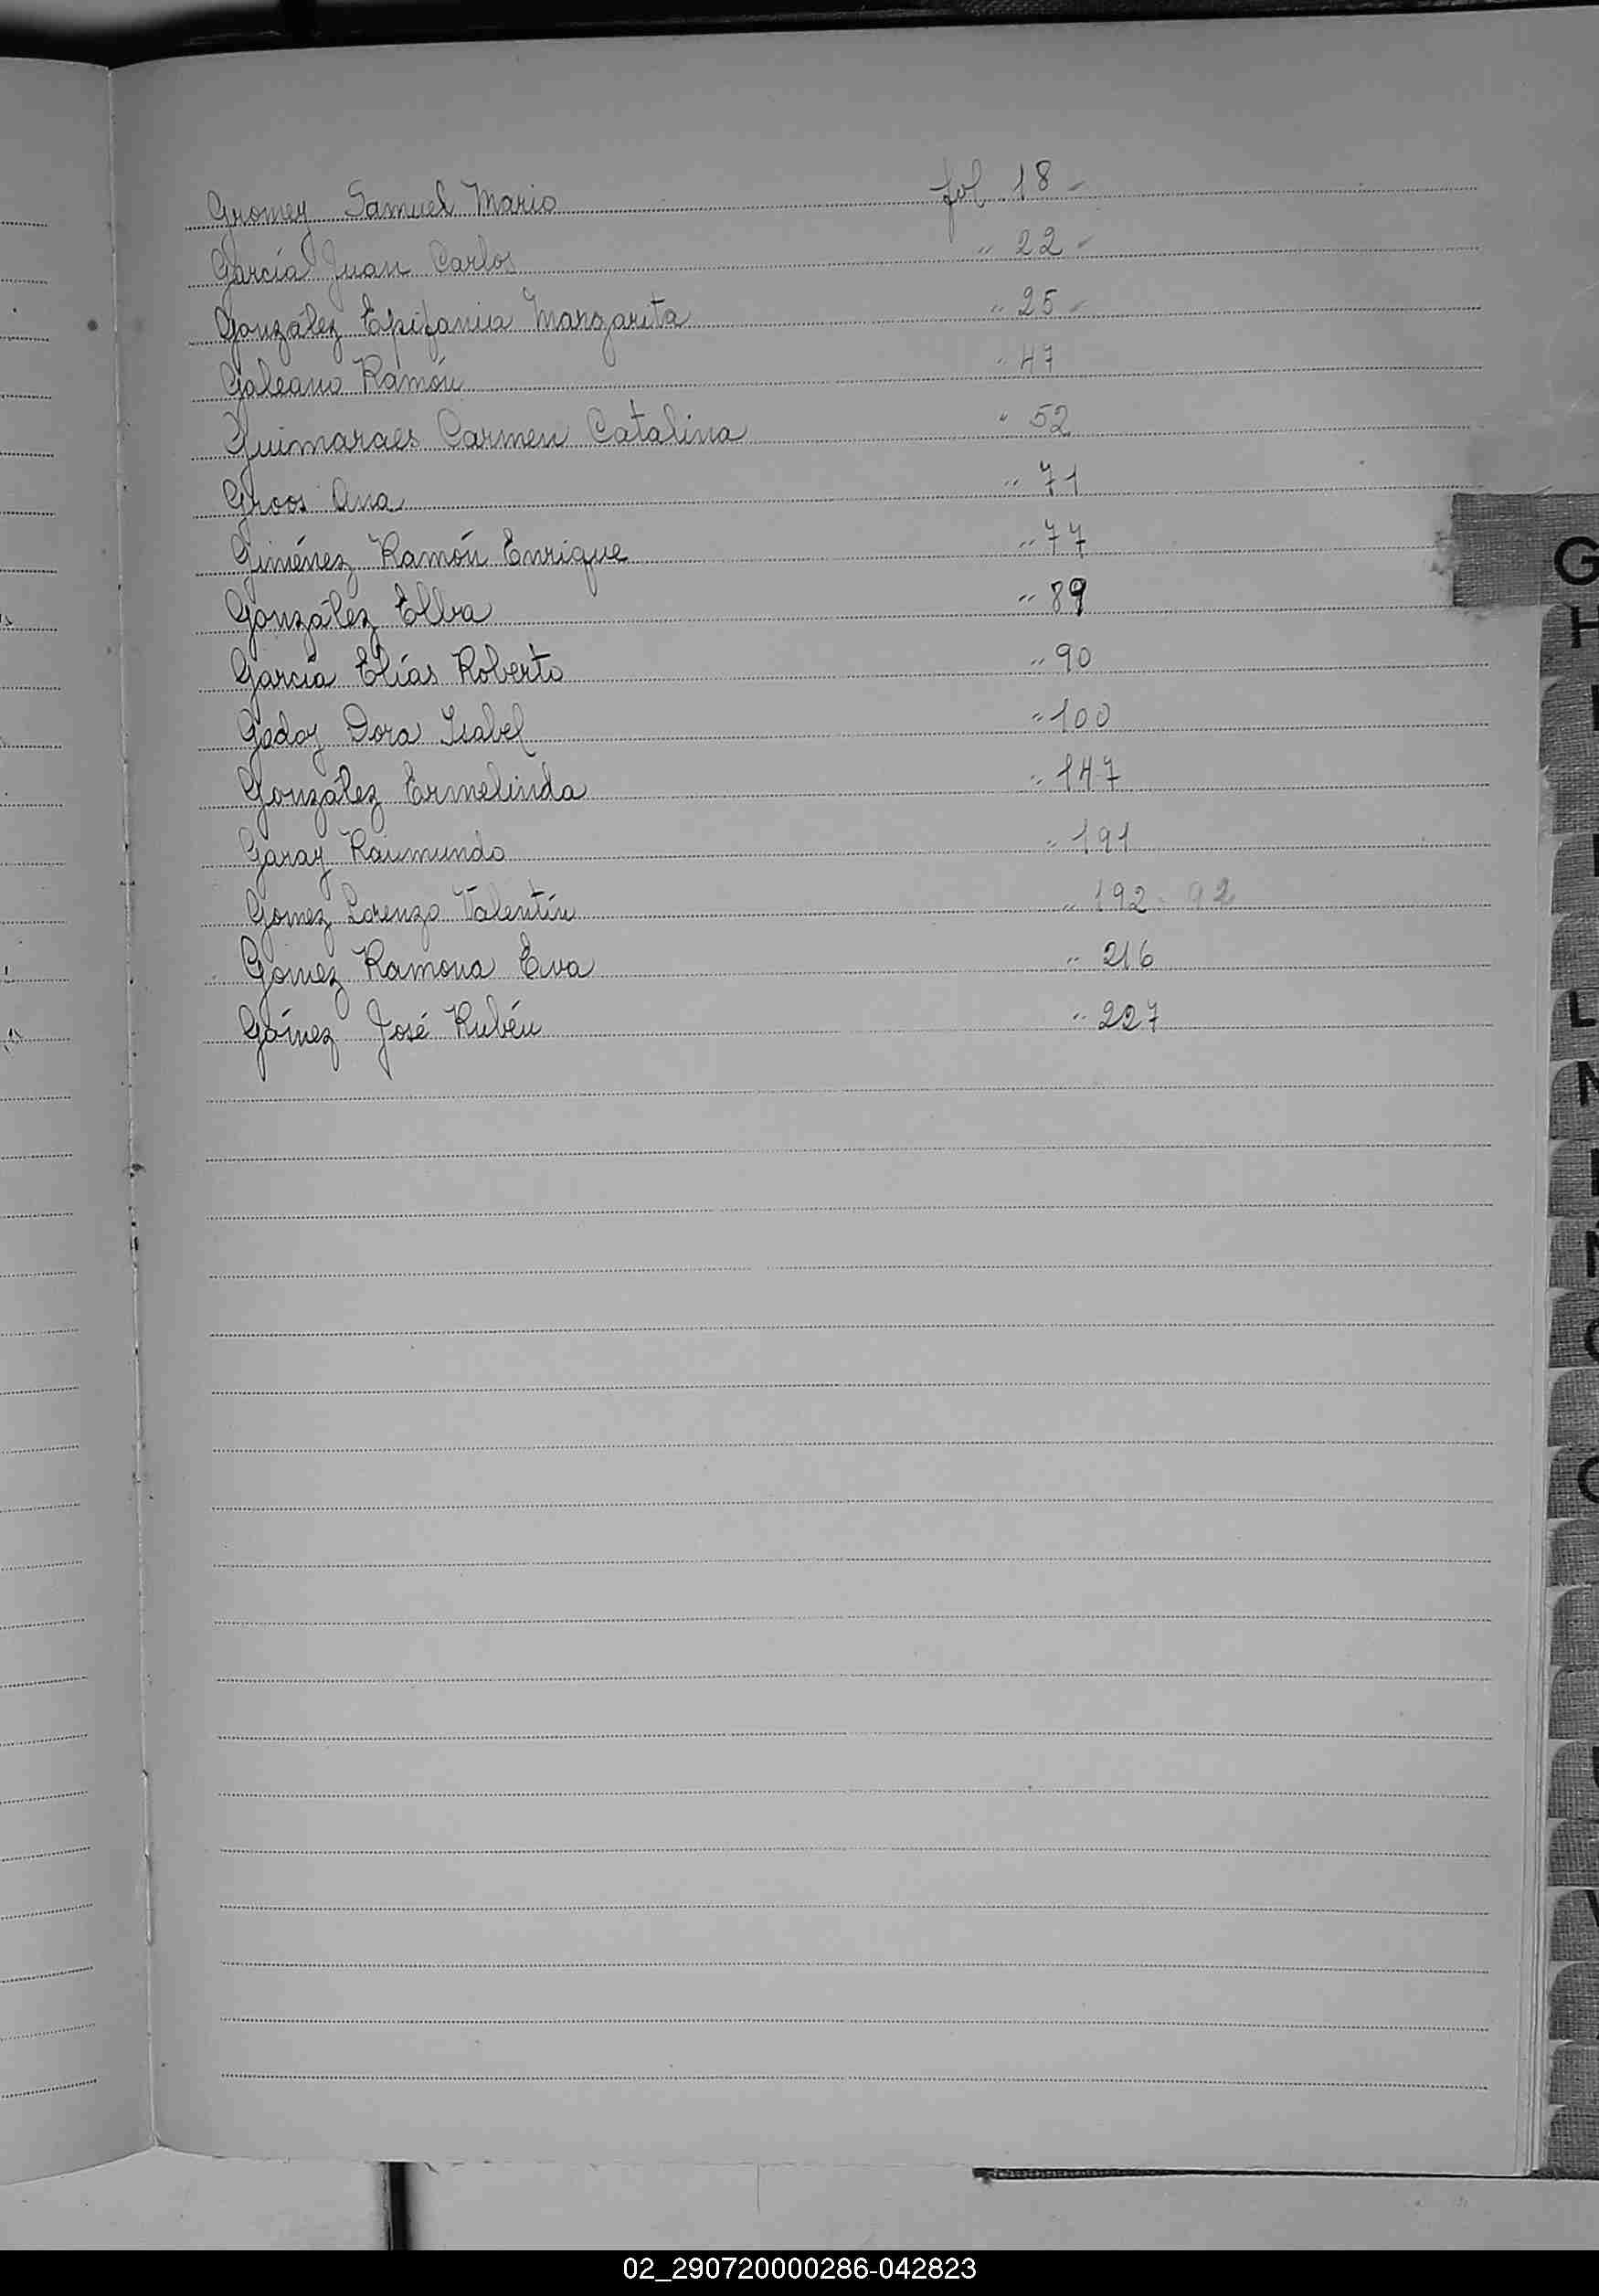 Gromey Samuel Mario fol. 18 -
García Juan Carlos " 22 -
González Epifania Margarita " 25 -
Galeano Ramón " 47
Guimaraes Carmen Catalina " 52
Groos Ana " 71
Giménez Ramón Enrique " 77
González Elba " 89
García Elías Roberto " 90
Godoy Dora Isabel " 100
González Ermelinda " 147
Garay Raimundo " 191
Gomez Lorenzo Valentín " 192 - 92
Gomez Ramona Eva " 216
Gómez José Rubén " 227
G
H
L
02_290720000286-042823